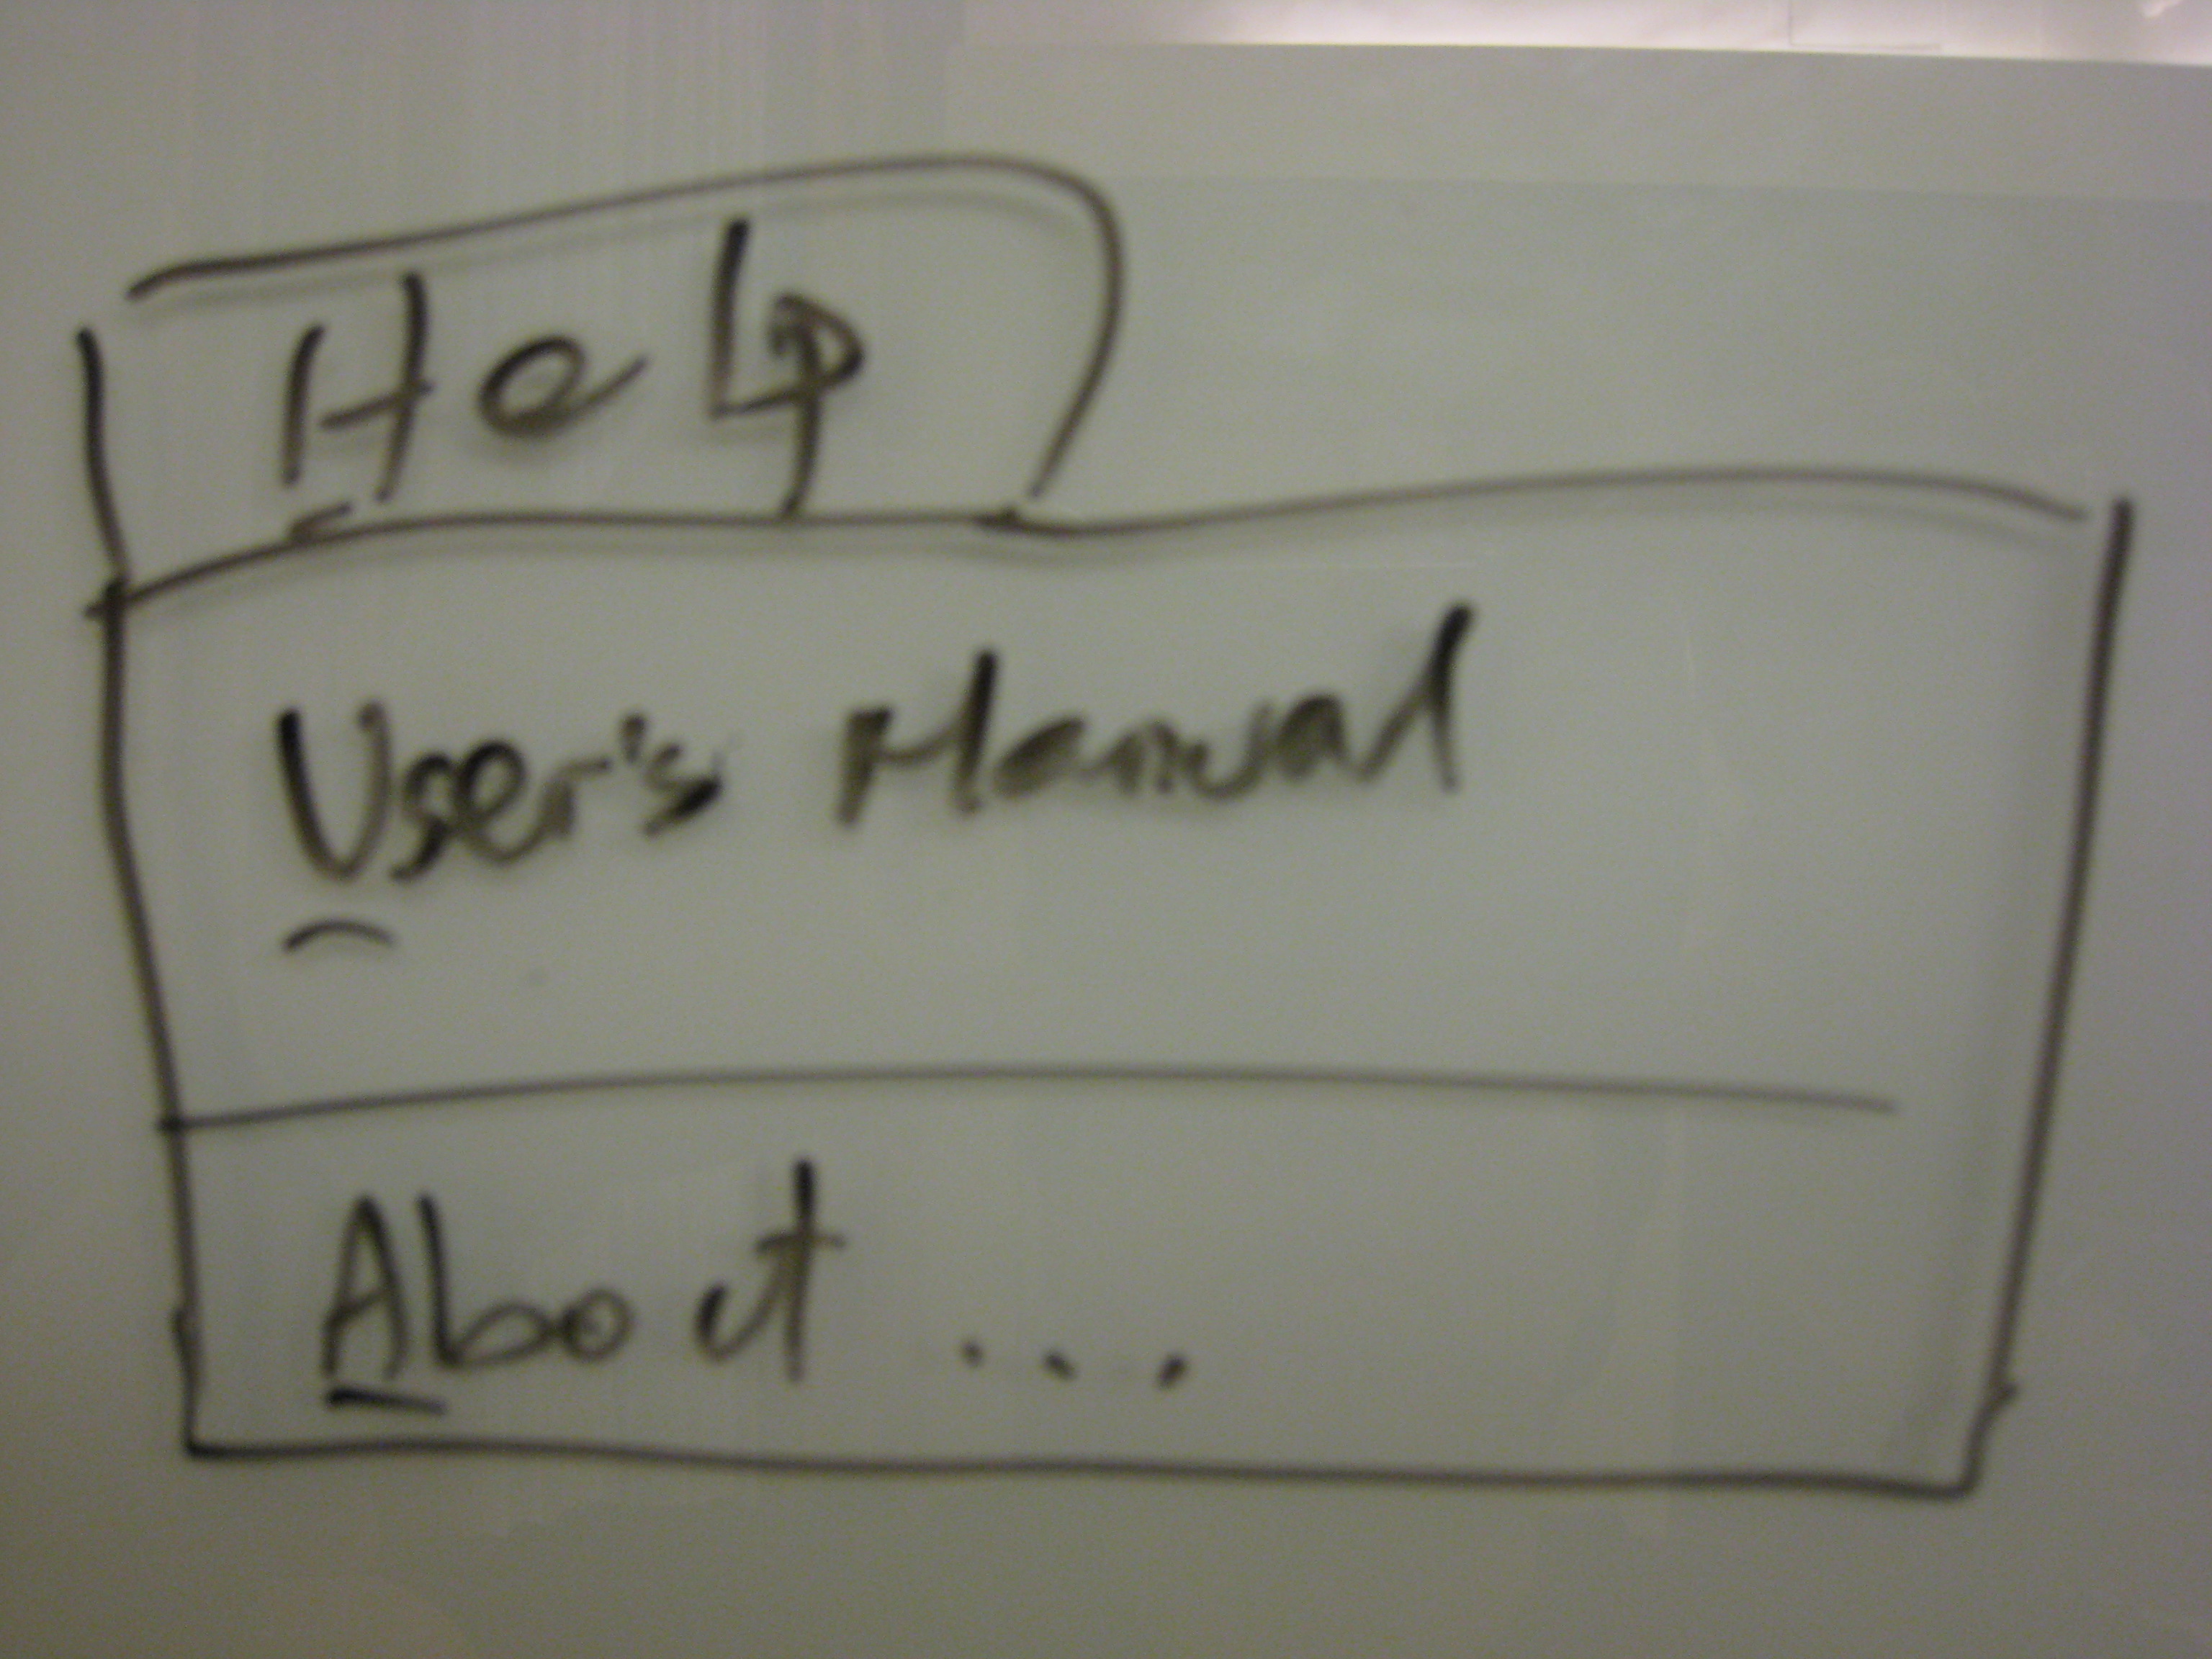 Help
User's Manual
About ...